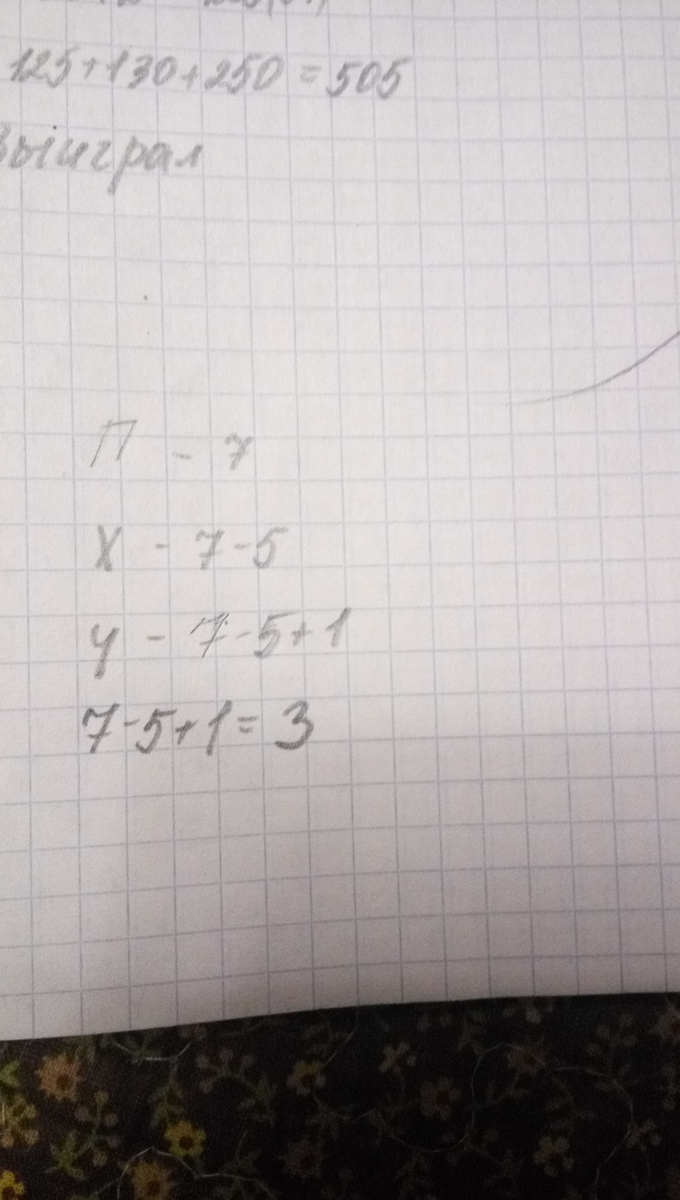 125+130+250 = 505
Выиграл
П - 7
Х - 7-5
У - 7-5+1
7-5+1= 3